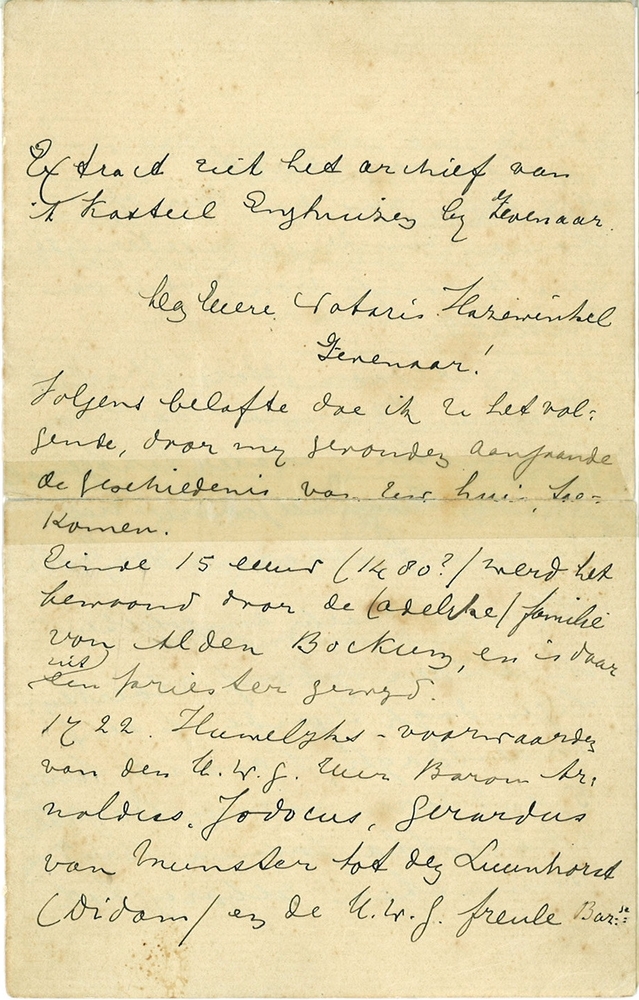 Extract uit het archief van
't Kasteel Enghuizen by Zevenaar.
Den Heere Notaris Hazewinkel
Zevenaar!
Volgens belofte doe ik U het vol=
gende, door my gevonden aangaande
de geschiedenis van Uw huis, toe=
komen.
Einde 15 eeuw (1480?) werd het
bewoond door de (adelyke) familie
van Alden Bockum, en is daar
uit
een priester gewyd.
1722. Huwelyks-voorwaarden
van den H.W.G. Heer Baron Ar=
noldus, Jodocus, Gerardus
van Munster tot den Luunhorst
(Didam) en de H.W.G. freule Bar:se